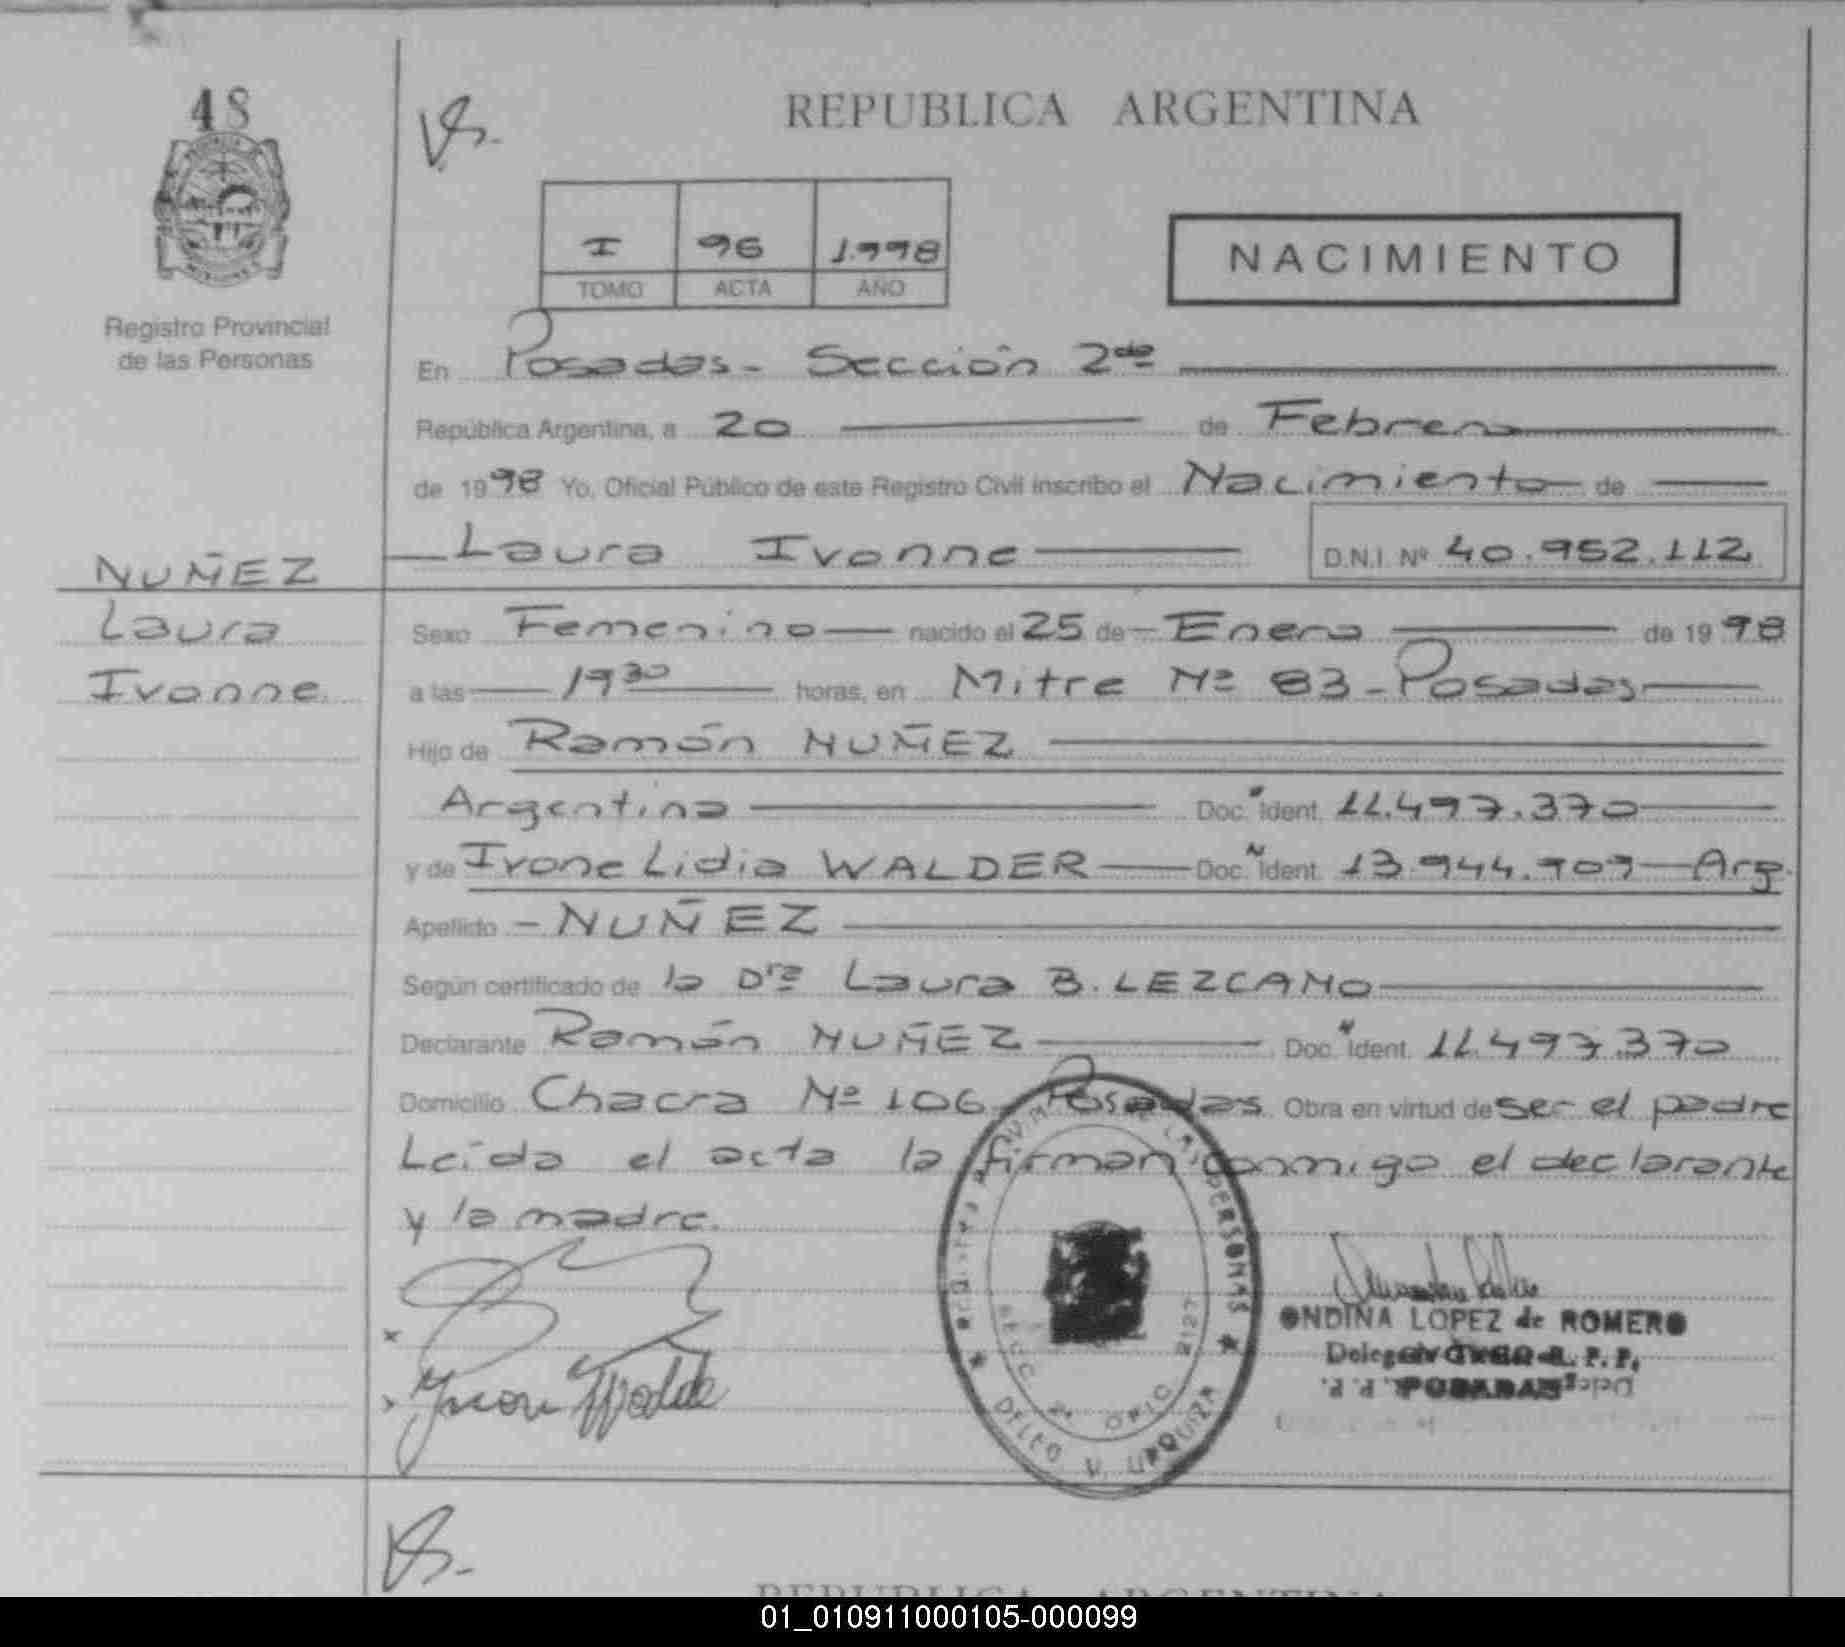 48
REPUBLICA ARGENTINA
I 96 1.998
TOMO ACTA AÑO
NACIMIENTO
Registro Provincial
de las Personas
En Posadas - Sección 2da
República Argentina, a 20 de Febrero
de 1998 Yo, Oficial Público de este Registro Civil inscribo el Nacimiento de
Laura Ivonne D.N.I. Nº 40.952.112
NUÑEZ
Laura
Ivonne
Sexo Femenino nacido el 25 de Enero de 1998
a las 19 30 horas, en Mitre Nº 83 - Posadas
Hijo de Ramón NUÑEZ
Argentina Doc. Ident. 11.497.370
y de Ivone Lidia WALDER Doc. Ident. 13.944.909 Arg.
Apellido - NUÑEZ
Según certificado de la Dra Laura B. LEZCANO
Declarante Ramón NUÑEZ Doc. Ident. 11.497.370
Domicilio Chacra Nº 106 Posadas Obra en virtud de ser el padre
Leída el acta la firman conmigo el declarante
y la madre.
PERSONAS
URQUIZA
ONDINA LOPEZ de ROMERO
R. P. P.
POSADAS
REPUBLICA ARGENTINA
01_010911000105-000099